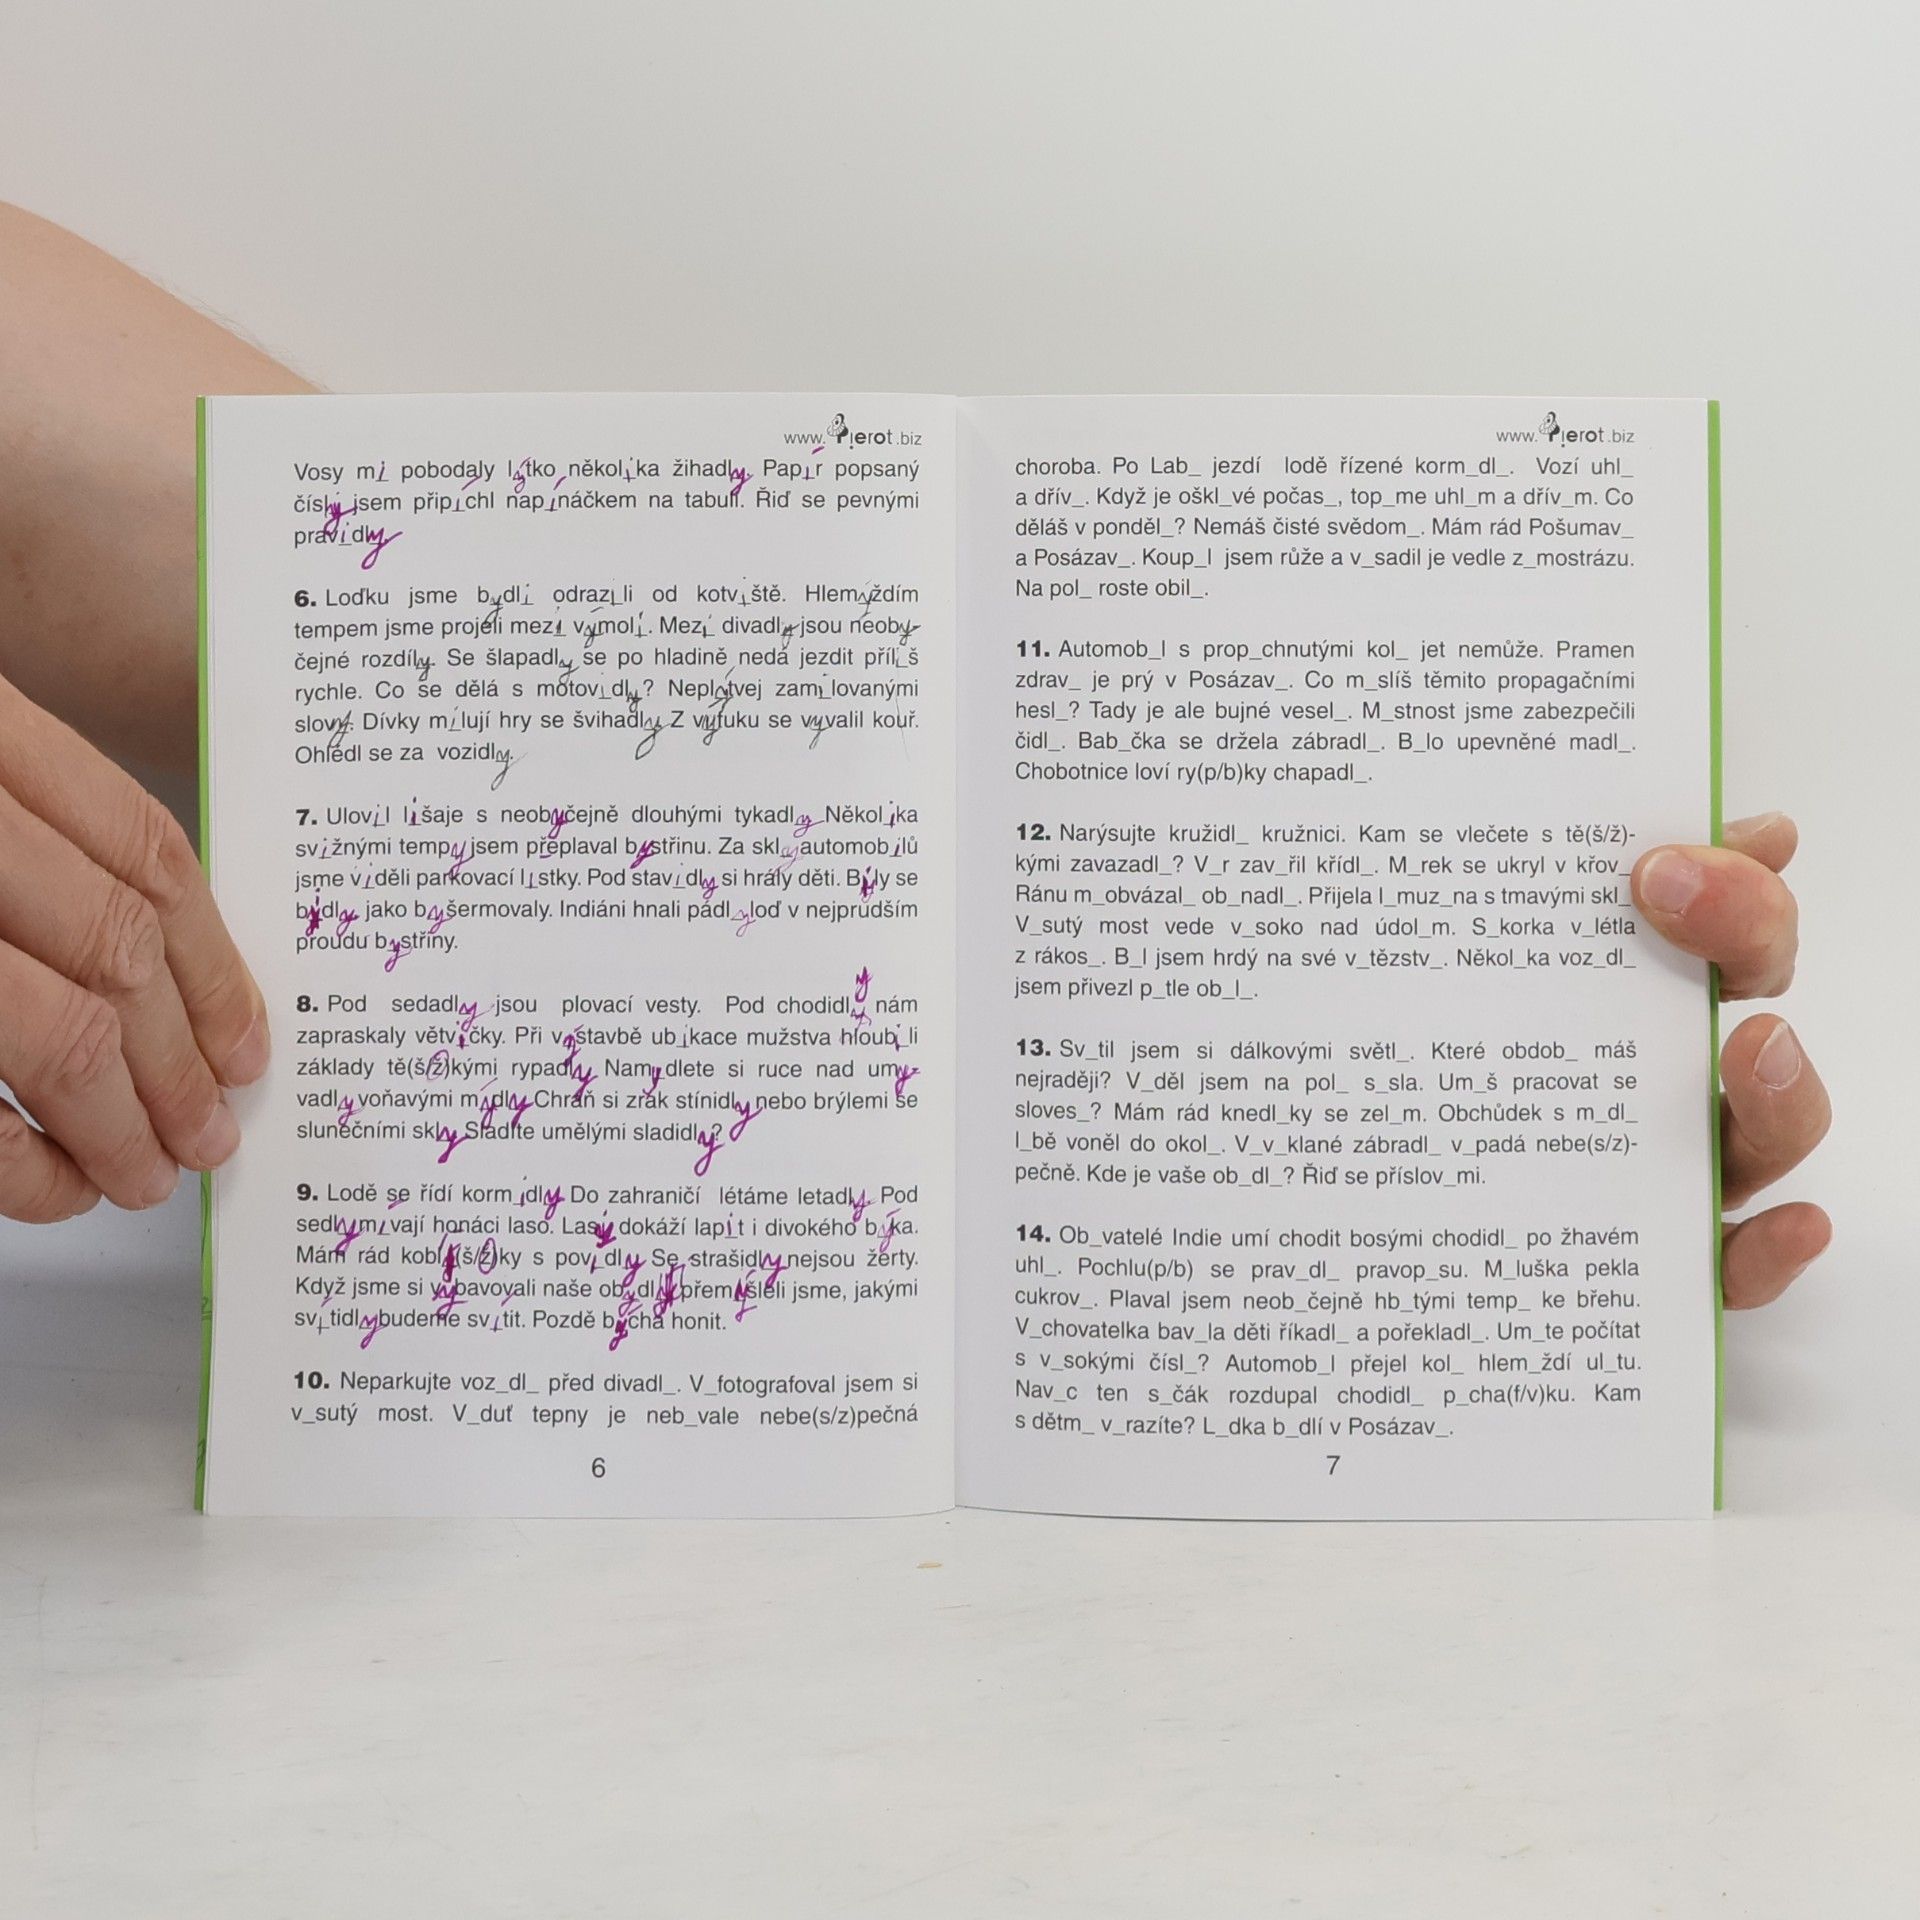 www.Pierot.biz
Vosy mi pobodaly lýtko několika žihadly. Papír popsaný
čísly jsem připíchl napínáčkem na tabuli. Řiď se pevnými
pravidly.
6. Loďku jsme bydli odrazili od kotviště. Hlemýždím
tempem jsme projeli mezi výmoli. Mezi divadly jsou neoby-
čejné rozdíly. Se šlapadly se po hladině nedá jezdit příliš
rychle. Co se dělá s motovidly? Neplýtvej zamilovanými
slovy. Dívky milují hry se švihadly Z výfuku se vyvalil kouř.
Ohlédl se za vozidly.
7. Ulovil lišaje s neobyčejně dlouhými tykadly Několika
svižnými tempy jsem přeplaval bystřinu. Za skly automobilů
jsme viděli parkovací lístky. Pod stavidly si hrály děti. Byly se
bidly, jako by šermovaly. Indiáni hnali pádly loď v nejprudším
proudu bystřiny.
8. Pod sedadly jsou plovací vesty. Pod chodidly nám
zapraskaly větvičky. Při výstavbě ubikace mužstva hloubili
základy tě(š/ž)kými rypadly Namydlete si ruce nad umy-
vadly voňavými mýdly Chraň si zrak stínidly nebo brýlemi se
slunečními skly Sladíte umělými sladidly?
9. Lodě se řídí kormidly Do zahraničí létáme letadly. Pod
sedly mívají honáci laso. Lasy dokáží lapit i divokého býka.
Mám rád kobly(š/ž)ky s povidly Se strašidly nejsou žerty.
Když jsme si vybavovali naše obydlí, přemýšleli jsme, jakými
svítidly budeme svítit. Pozdě bycha honit.
10. Neparkujte voz_dl_ před divadl_. V_fotografoval jsem si
v_sutý most. V_duť tepny je neb_vale nebe(s/z)pečná
6
www.Pierot.biz
choroba. Po Lab_ jezdí lodě řízené korm_dl_. Vozí uhl_
a dřív_. Když je oškl_vé počas_, top_me uhl_m a dřív_m. Co
děláš v ponděl_? Nemáš čisté svědom_. Mám rád Pošumav_
a Posázav_. Koup_l jsem růže a v_sadil je vedle z_mostrázu.
Na pol_ roste obil_.
11. Automob_l s prop_chnutými kol_ jet nemůže. Pramen
zdrav_ je prý v Posázav_. Co m_slíš těmito propagačními
hesl_? Tady je ale bujné vesel_. M_stnost jsme zabezpečili
čidl_. Bab_čka se držela zábradl_. B_lo upevněné madl_.
Chobotnice loví ry(p/b)ky chapadl_.
12. Narýsujte kružidl_ kružnici. Kam se vlečete s tě(š/ž)-
kými zavazadl_? V_r zav_řil křídl_. M_rek se ukryl v křov_
Ránu m_obvázal_ ob_nadl_. Přijela l_muz_na s tmavými skl_
V_sutý most vede v_soko nad údol_m. S_korka v_létla
z rákos_. B_l jsem hrdý na své v_tězstv_. Několik_ka voz_dl_
jsem přivezl p_tle ob_l_.
13. Sv_til jsem si dálkovými světl_. Které obdob_ máš
nejraději? V_děl jsem na pol_ s_sla. Um_š pracovat se
sloves_? Mám rád knedl_ky se zel_m. Obchůdek s m_dl_
l_bě voněl do okol_. V_v_klané zábradl_ v_padá nebe(s/z)-
pečně. Kde je vaše ob_dl_? Řiď se příslov_mi.
14. Ob_vatelé Indie umí chodit bosými chodidl_ po žhavém
uhl_. Pochlu(p/b) se prav_dl_ pravop_su. M_luška pekla
cukrov_. Plaval jsem neob_čejně hb_tými temp_ ke břehu.
V_chovatelka bav_la děti říkadl_ a pořekladl_. Um_te počítat
s v_sokými čísl_? Automob_l přejel kol_ hlem_ždí ul_tu.
Nav_c ten s_čák rozdupal chodidl_ p_cha(f/v)ku. Kam
s dětm_ v_razíte? L_dka b_dlí v Posázav_.
7